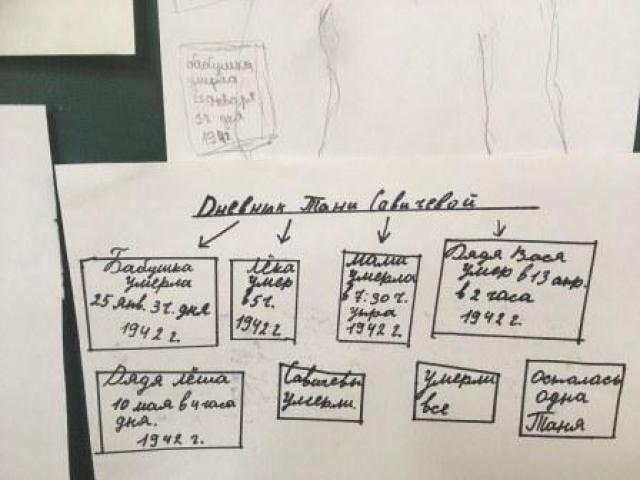 бабушка
умерла
25 января
3 ч. дня
1942
Дневник Тани Савичевой
Бабушка
умерла
25 янв. 3 ч. дня
1942 г.
Лёка
умер
в 5 ч.
1942 г.
мама
умерла
в 7:30 ч.
утра
1942 г.
Дядя Вася
умер в 13 апр.
в 2 часа
1942 г.
Дядя Лёша
10 мая в 4 часа
дня.
1942 г.
Савичевы
умерли.
умерли
все
осталась
одна
Таня